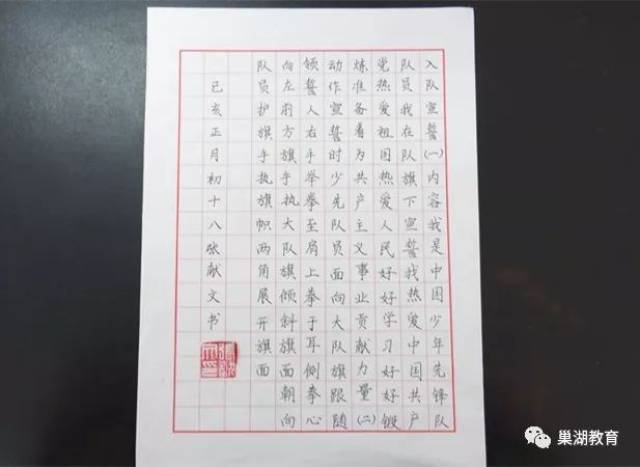 入队宣誓(一)内容我是中国少年先锋队
队员我在队旗下宣誓我热爱中国共产
党热爱祖国热爱人民好好学习好好锻
炼准备着为共产主义事业贡献力量(二)
动作宣誓时少先队员面向大队旗跟随
领誓人右手举拳至肩上拳于耳侧拳心
向左前方旗手执大队旗倾斜旗面朝向
队员护旗手执旗帜两角展开旗面
己亥正月初十八张献文书
巢湖教育